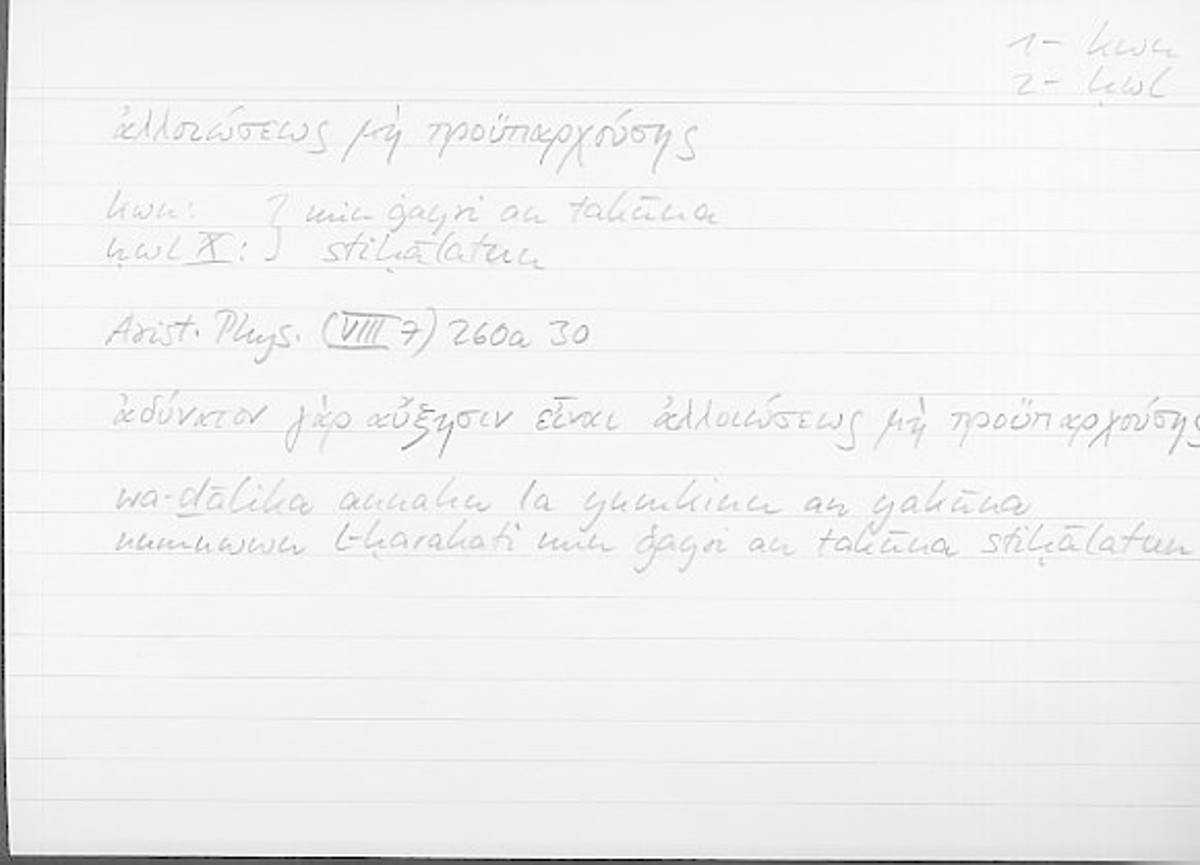 1- kwn
2- ḥwl
ἀλλοιώσεως μὴ προϋπαρχούσης
kwn: } min ġayri an takūna
ḥwl X: } stiḥālatun
Arist. Phys. (VIII 7) 260a 30
ἀδύνατον γὰρ αὔξησιν εἶναι ἀλλοιώσεως μὴ προϋπαρχούσης
wa-ḏālika annahu la yumkinu an yakūna
numuwwu l-ḥarakati min ġayri an takūna stiḥālatun